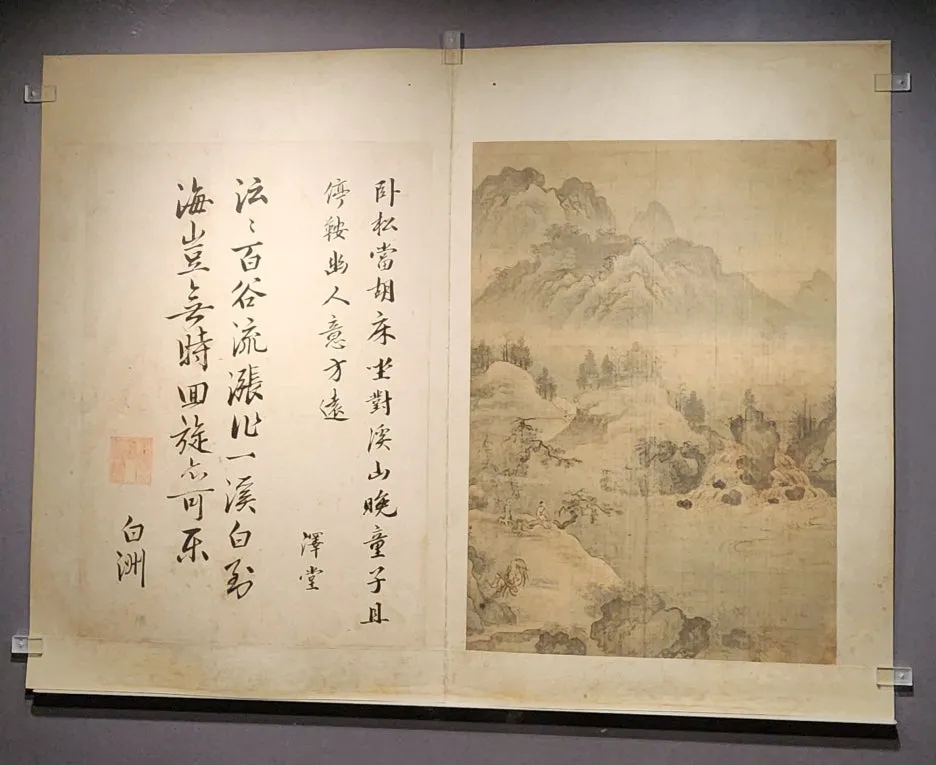 卧松當胡床坐對溪山晚童子且
停鞍幽人意方遠
澤堂
泫〻百谷流漲作一溪白到
海豈無時回旋亦可樂
白洲